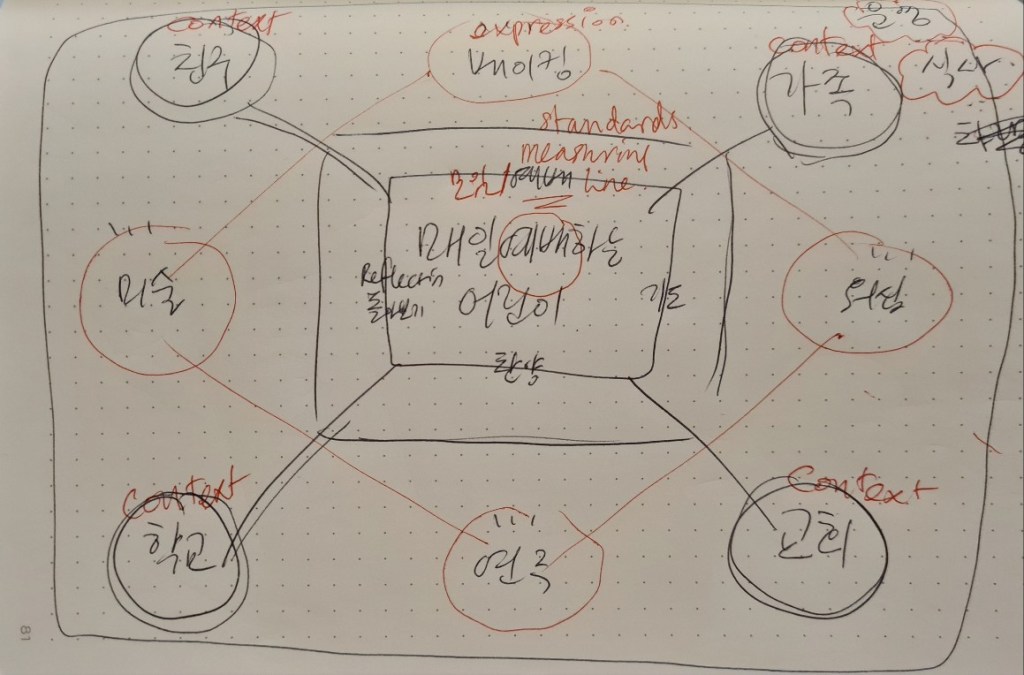 context
친구
expression
베이킹
context
가족
식사
standards
예배 line
매일 예배하는
어린이
돌아보기
기도
찬양
미술
워십
context
학교
연극
context
교회
81